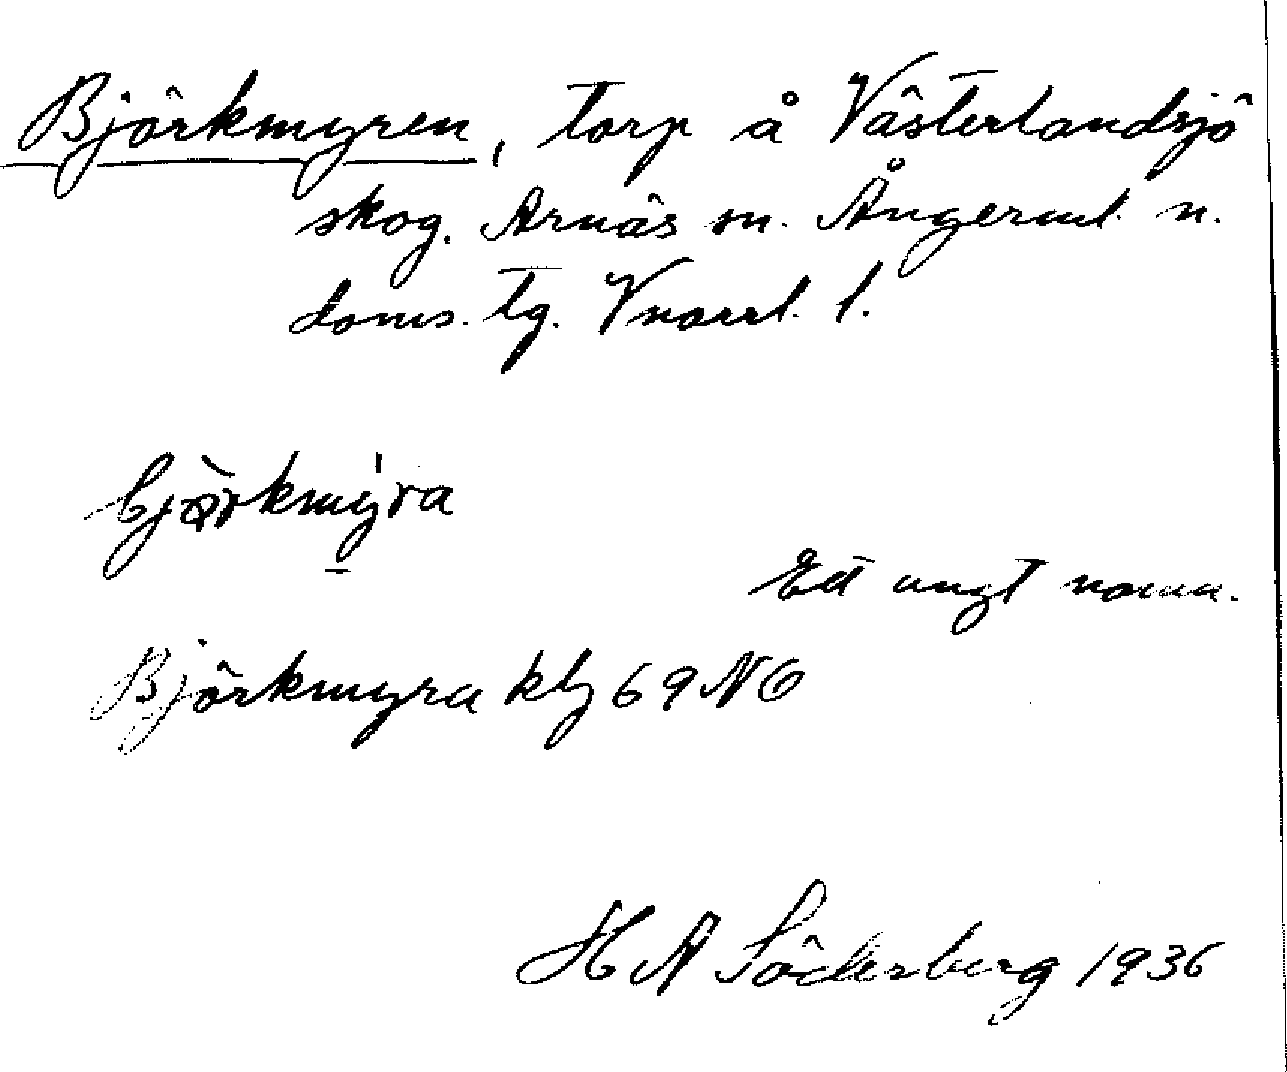 Björkmyren, torp å Västerlandsjö
skog. Arnäs sn. Ångerml. n.
doms. tg. Vnorrl. l.
bjòrkmýra
Ett ungt namn.
Björkmyra kbl 69 NO
H A Söderberg 1936